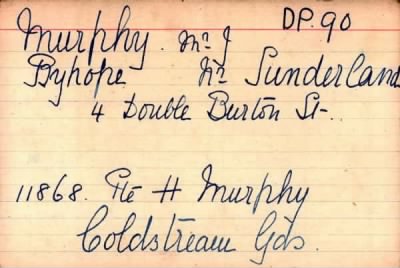 DP.90
Murphy. Mr J
Byhope Nr Sunderland
4 Double Burton St.
11868. Pte H Murphy
Coldstream Gds.